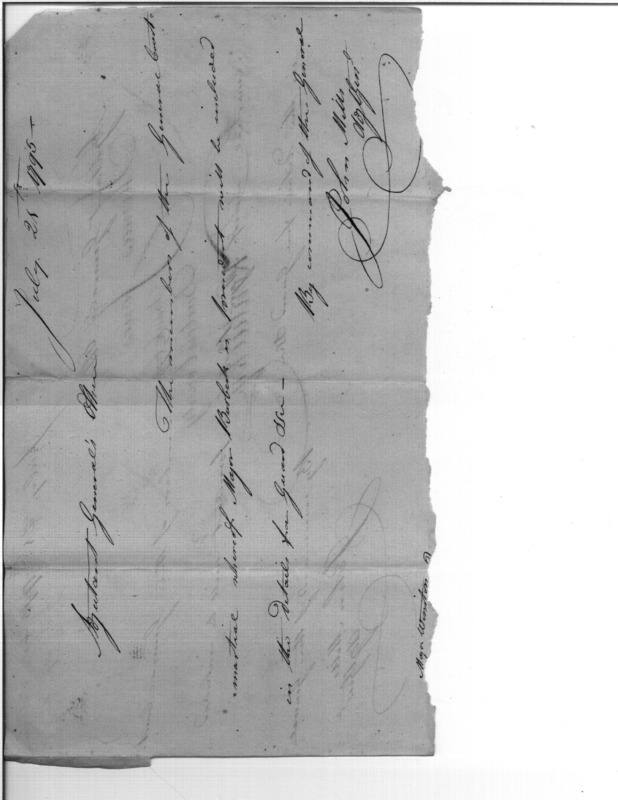 Adjutant General's Office July 25th 1795 —
The members of the General Court
martial whereof Major Burbeck is president will be included
in the details for Guard &ce —
By command of the General
John Mills
Adjt Genl
Major Winston